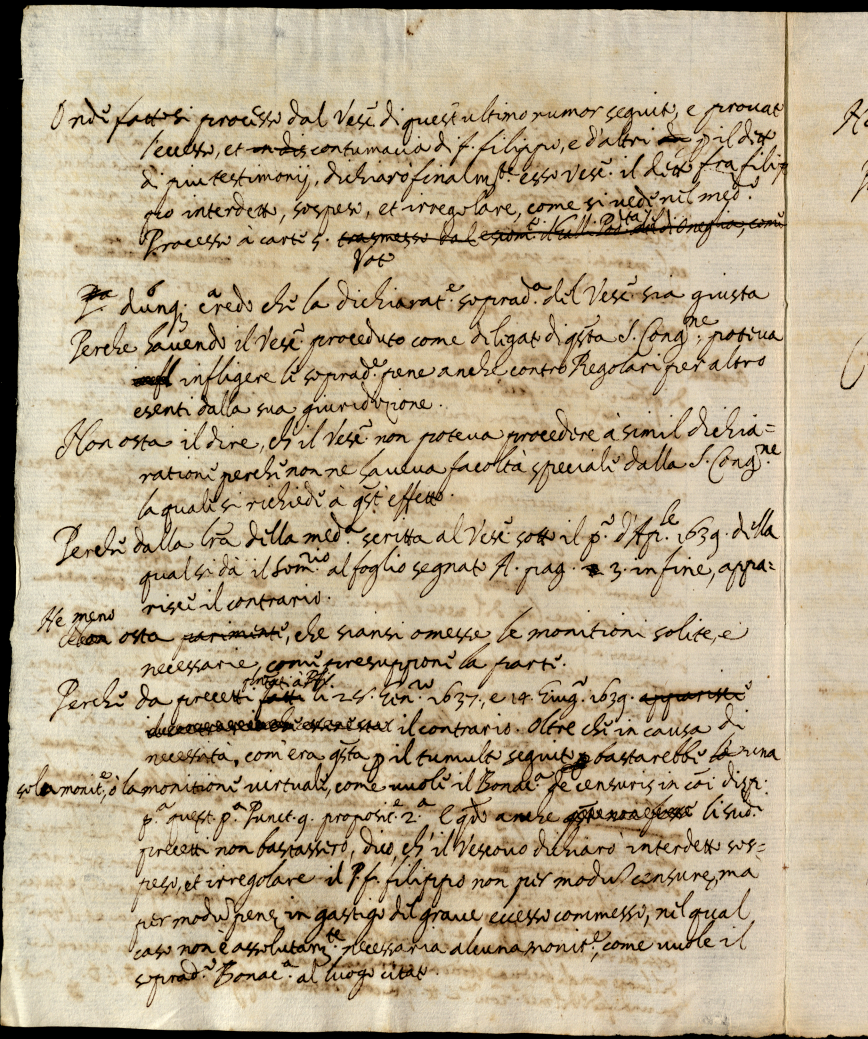 Onde fattosi processo dal Vesc.º di quest'ultimo rumor seguito, e provato
l'eccesso, et contumacia di f. filippo, e d'altri p il detto
di piu testimonij, dichiarò finalm.te esso Vesc.º il detto fra filip
po interdetto, sospeso, et irregolare, come si vede nel med.º
Processo à carte 5.
Voto
dunq; credo che la dichiarat.e soprad.a del Vesc.º sia giusta
Perche havendo il Vesc.º proceduto come delegato di qsta S. Cong.ne, poteva
infligere le soprad.e pene anche contro Regolari per altro
esenti dalla sua giuridizione.
Non osta il dire, ch il Vesc.º non poteva procedere à simil dichia=
ratione perche non ne haveva facoltà speciale dalla S. Cong.ne
la quale si richiede à qst'effetto.
Perche dalla lra della med.a scritta al Vesc.º sotto il p.º d'Ap.le 1639. della
qual si dà il Som.rio al foglio segnato A. pag. 3. in fine, appa=
risce il contrario.
Ne meno
osta parimente, che siansi omesse le monitioni solite, e
necessarie, come presuppone la parte.
Perche da precetti fatti li 25. Gen.ro 1637., e 14. Giug.º 1639. apparisce
il contrario. Oltre che in causa di
necessità, com'era qsta p il tumulto seguito, bastarebbe una
sola monit.e, ò la monitione virtuale, come vuole il Bonac.a de censuris in coi disp.
p.a quest. p.a Punct. 9. proposit.e 2.a E qdo anche li sud.i
precetti non bastassero, dico, ch il Vescovo dichiarò interdetto sos=
peso, et irregolare il P. f. filippo non per modu censure, ma
per modu pene, in gastigo del grave eccesso commesso, nel qual
caso non è assolutam.te necessaria alcuna monit.e, come vuole il
soprad.º Bonac.a al luogo citato.